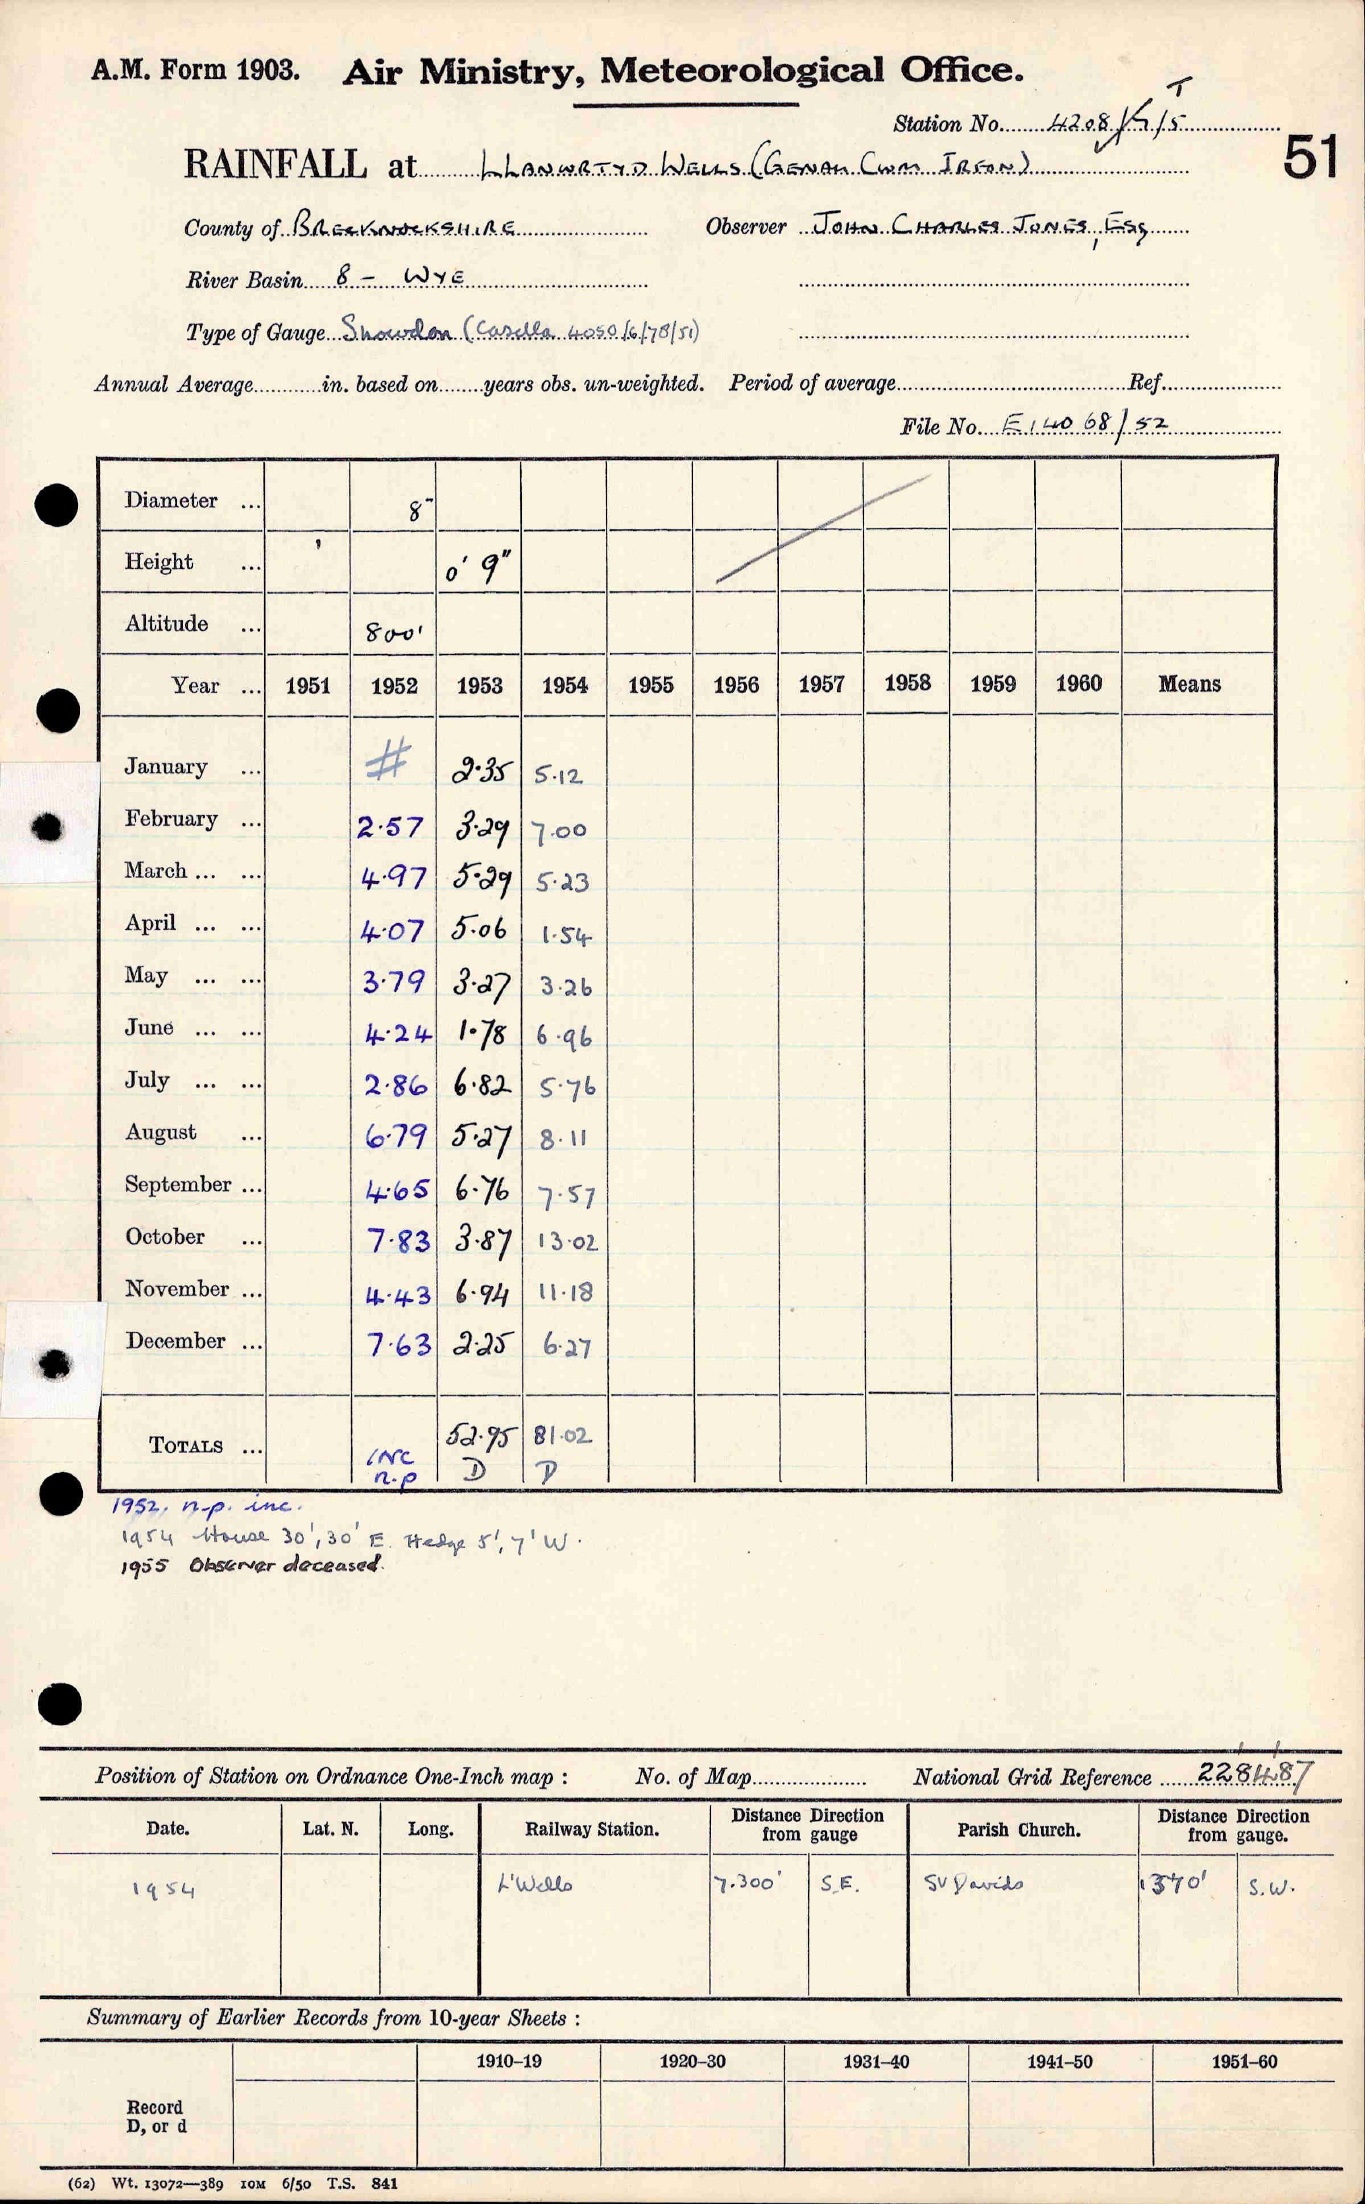 A.M. Form 1903. Air Ministry, Meteorological Office.
Station No. 4208/ /5 T
51
RAINFALL at LLANWRTYD WELLS (GENAU CWM IRFON)
County of BRECKNOCKSHIRE Observer JOHN CHARLES JONES, ESQ
River Basin 8 - WYE
Type of Gauge Snowdon (Casella 4050/6/78/51)
Annual Average in. based on years obs. un-weighted. Period of average Ref.
File No. E14068/52
Diameter ... 8"
Height ... 0' 9"
Altitude ... 800'
Year ... 1951 1952 1953 1954 1955 1956 1957 1958 1959 1960 Means
January ... # 2.35 5.12
February ... 2.57 3.29 7.00
March ... ... 4.97 5.29 5.23
April ... ... 4.07 5.06 1.54
May ... ... 3.79 3.27 3.26
June ... ... 4.24 1.78 6.96
July ... ... 2.86 6.82 5.76
August ... 6.79 5.27 8.11
September ... 4.65 6.76 7.57
October ... 7.83 3.87 13.02
November ... 4.43 6.94 11.18
December ... 7.63 2.25 6.27
TOTALS ... INC n.p 52.95 D 81.02 D
1952. n.p. inc.
1954 House 30', 30' E. Hedge 5', 7' W.
1955 Observer deceased.
Position of Station on Ordnance One-Inch map : No. of Map National Grid Reference 228487
Date. Lat. N. Long. Railway Station. Distance Direction from gauge Parish Church. Distance Direction from gauge.
1954 L'Wells 7.300' S.E. St Davids 1370' S.W.
Summary of Earlier Records from 10-year Sheets :
1910–19 1920–30 1931–40 1941–50 1951–60
Record
D, or d
(62) Wt. 13072—389 10M 6/50 T.S. 841